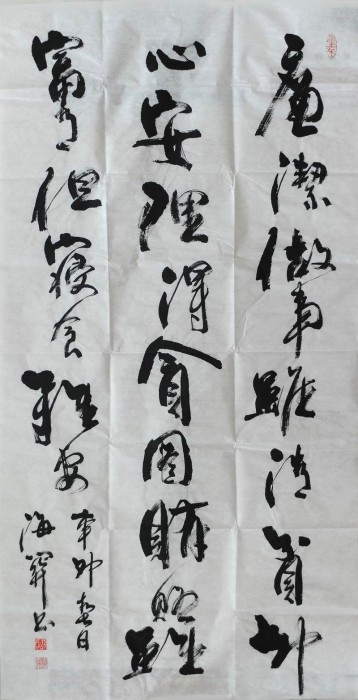 廉潔做事雖清貧卻
心安理得貪圖賄賂雖
富有但寢食難安
辛卯春日
海 書